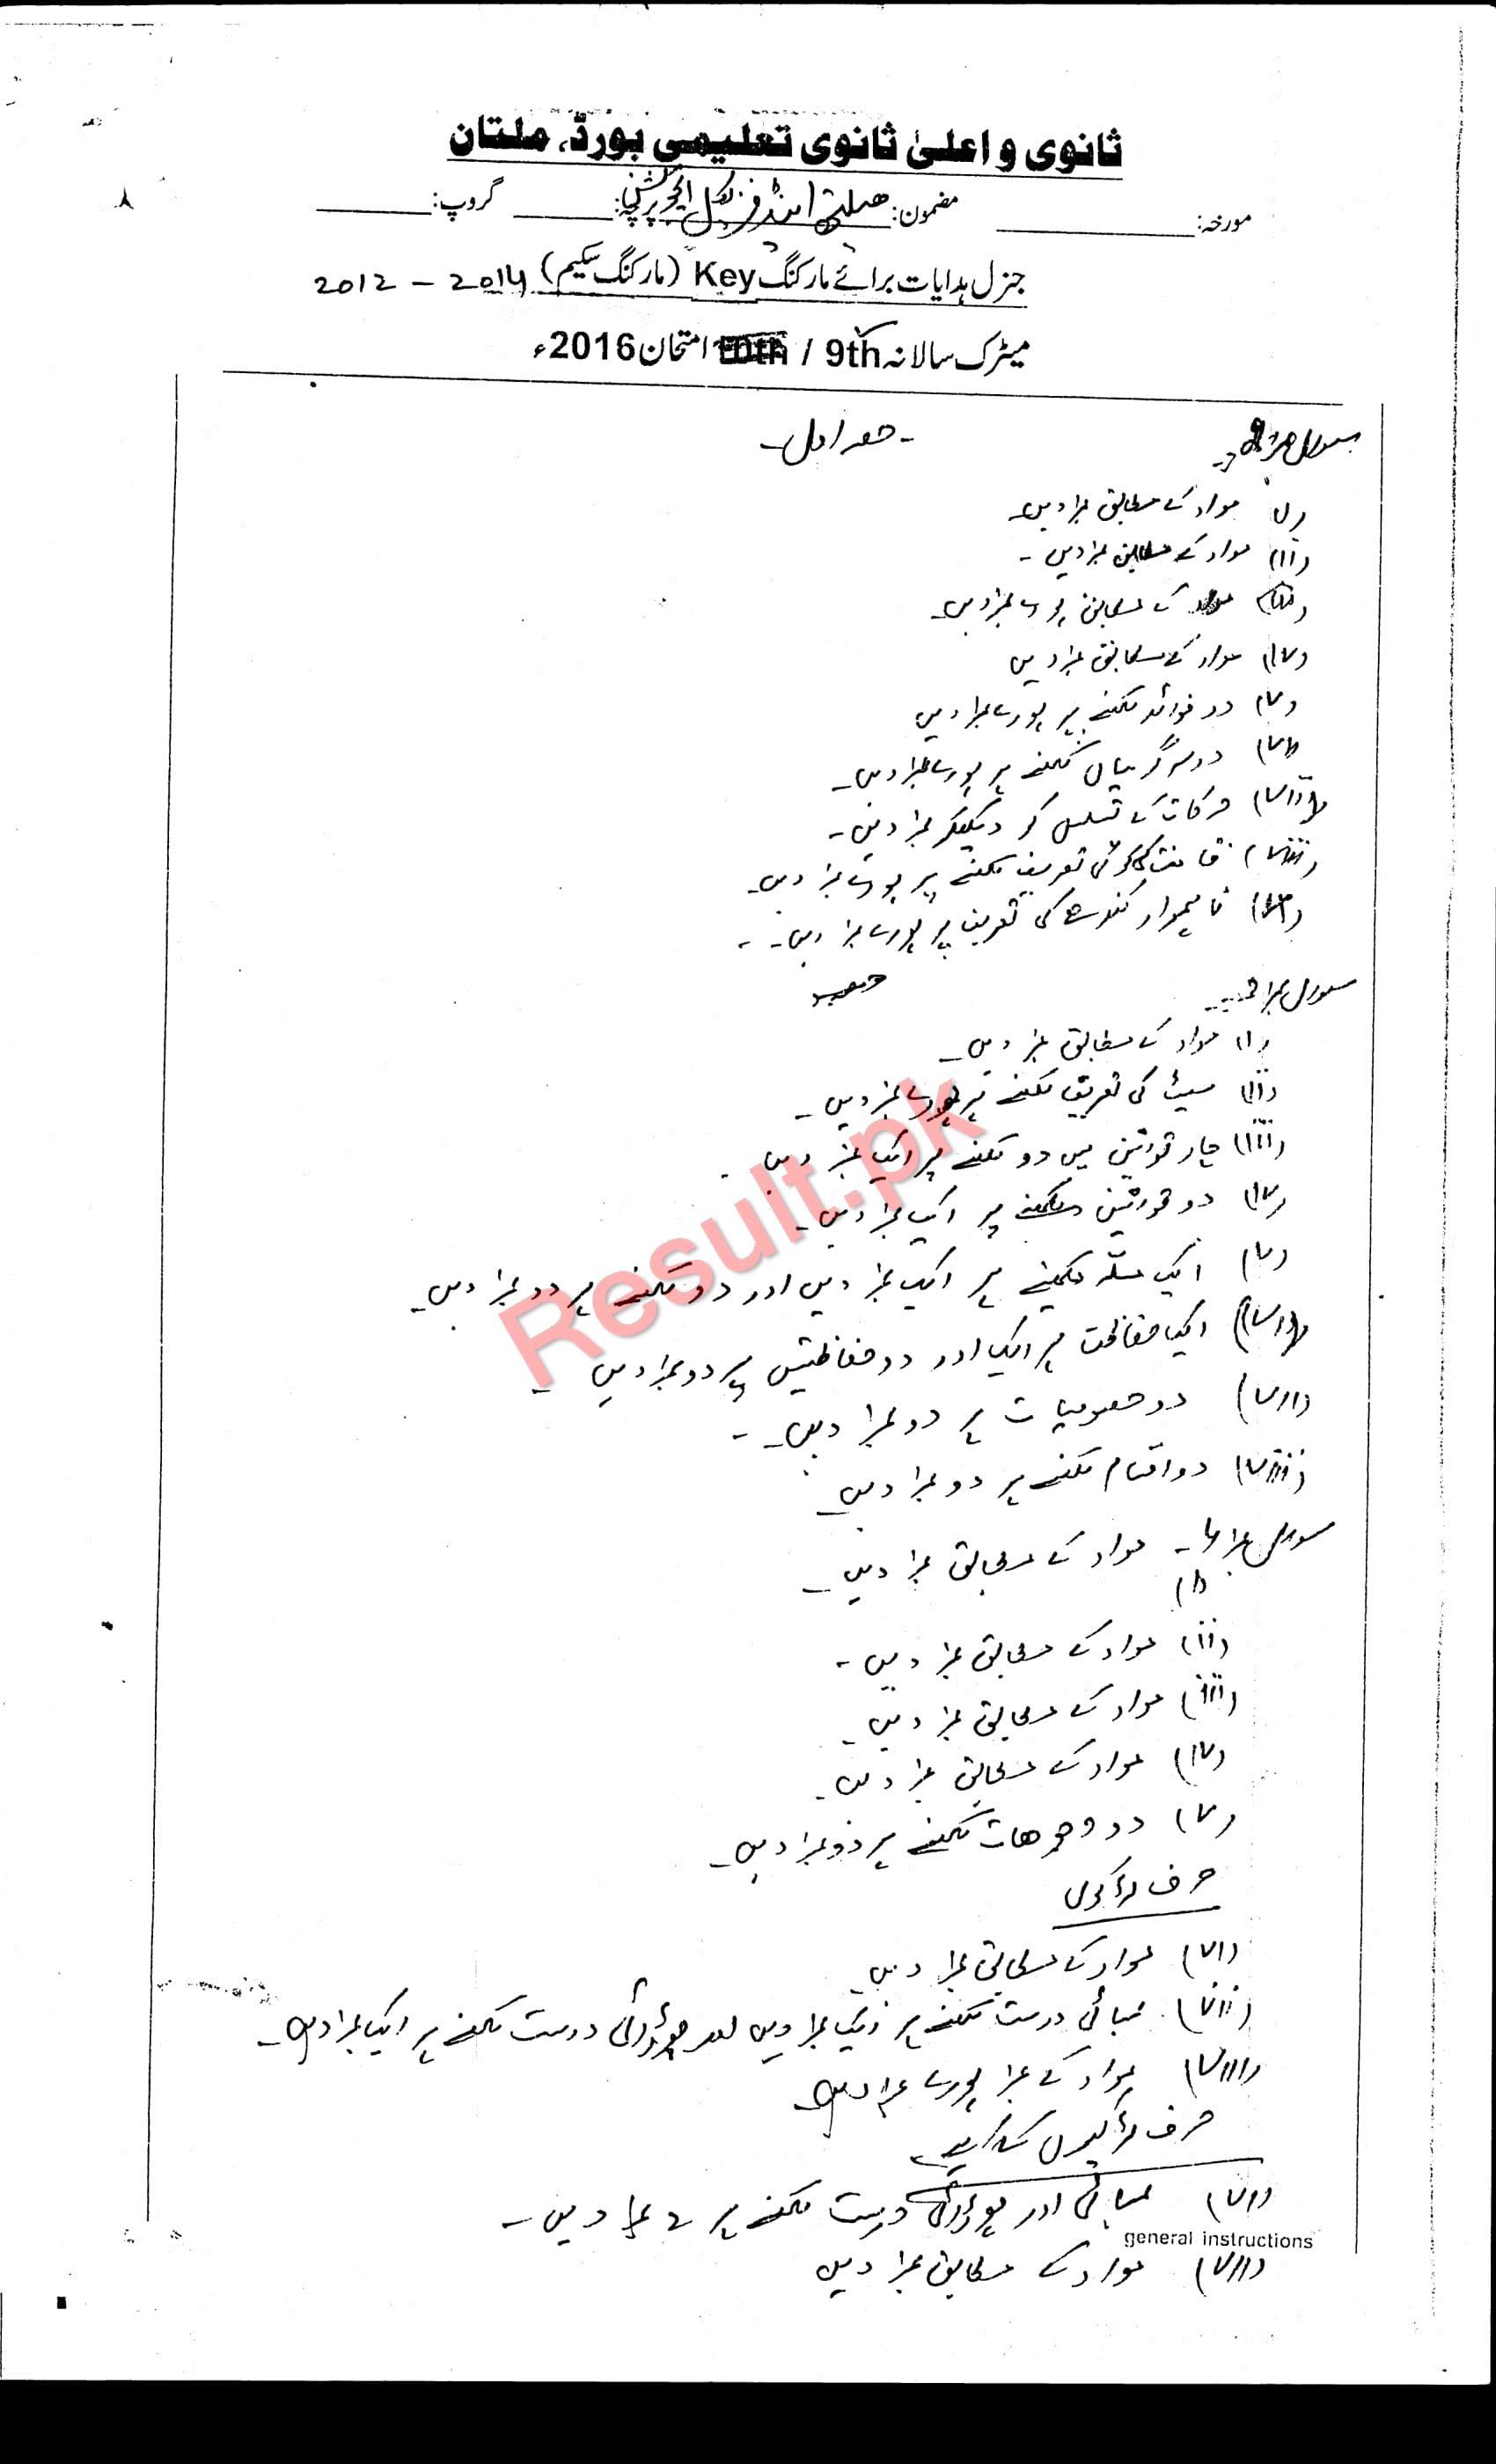 ثانوی و اعلیٰ ثانوی تعلیمی بورڈ، ملتان
مورخہ: مضمون: ہیلتھ اینڈ فزیکل ایجوکیشن پرچہ: گروپ:
جنرل ہدایات برائے مارکنگ Key (مارکنگ سکیم) 2012 - 2014
میٹرک سالانہ 9th / 10th امتحان 2016ء
حصہ اول
سوال نمبر
مواد کے مطابق نمبر دیں۔
(ii) مواد کے مطابق نمبر دیں۔
(iii) مواد کے مطابق پورے نمبر دیں۔
(iv) مواد کے مطابق نمبر دیں
(v) دو فوائد لکھنے پر پورے نمبر دیں
(vi) دو سرگرمیاں لکھنے پر پورے نمبر دیں۔
(vii) حرکات کے تسلسل کو دیکھکر نمبر دیں۔
(viii) کی تعریف لکھنے پر پورے نمبر دیں۔
(ix) ناہموار کندھے کی تعریف پر پورے نمبر دیں۔
سوال نمبر
(i) مواد کے مطابق نمبر دیں۔
(ii) سیٹ کی تعریف لکھنے پر پورے نمبر دیں۔
(iii) چار قوانین میں دو لکھنے پر ایک نمبر دیں۔
(iv) دو لکھنے پر ایک نمبر دیں۔
(v) ایک مسئلہ لکھنے پر ایک نمبر دیں اور دو لکھنے پر دو نمبر دیں۔
(vi) ایک حفاظت پر ایک اور دو حفاظتیں پر دو نمبر دیں۔
(vii) دو خصوصیات پر دو نمبر دیں۔
(viii) دو اقسام لکھنے پر دو نمبر دیں۔
سوال نمبر مواد کے مطابق نمبر دیں۔
(i)
(ii) مواد کے مطابق نمبر دیں۔
(iii) مواد کے مطابق نمبر دیں۔
(iv) مواد کے مطابق نمبر دیں۔
(v) دو وجوہات لکھنے پر دو نمبر دیں۔
صرف لڑکوں
(vi) مواد کے مطابق نمبر دیں
(vii) لمبائی درست لکھنے پر ایک نمبر دیں اور چوڑائی درست لکھنے پر ایک نمبر دیں۔
(viii) مواد کے پورے نمبر دیں۔
صرف لڑکیوں کیلئے
(vi) لمبائی اور چوڑائی درست لکھنے پر نمبر دیں۔
general instructions
(vii) مواد کے مطابق نمبر دیں
Result.pk